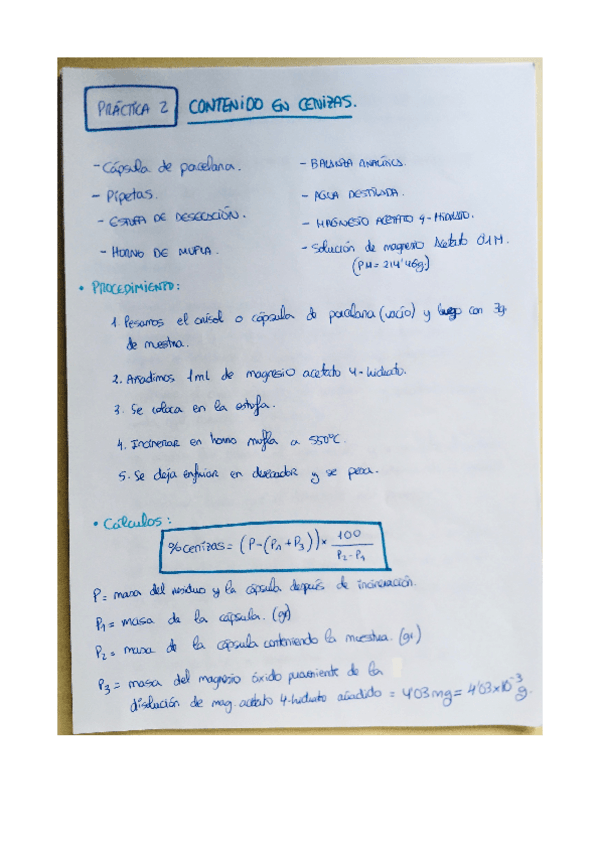 PRÁCTICA 2 CONTENIDO EN CENIZAS.
- Cápsula de porcelana.
- Pipetas.
- ESTUFA DE DESECACIÓN.
- HORNO DE MUFLA.
- BALANZA ANALÍTICA.
- AGUA DESTILADA.
- MAGNESIO ACETATO 4-HIDRATO.
- Solución de magnesio Acetato 0.1M.
(PM = 214'46g)
• PROCEDIMIENTO:
1. Pesamos el crisol o cápsula de porcelana (vacío) y luego con 3g
de muestra.
2. Añadimos 1ml de magnesio acetato 4-hidrato.
3. Se coloca en la estufa.
4. Incinerar en horno mufla a 550ºC.
5. Se deja enfriar en desecador y se pesa.
• Cálculos:
% cenizas = (P-(P1+P3)) × 100 / P2-P1
P = masa del residuo y la cápsula después de incineración.
P1 = masa de la cápsula. (gr)
P2 = masa de la cápsula conteniendo la muestra. (gr)
P3 = masa del magnesio óxido proveniente de la
disolución de mag. acetato 4-hidrato añadido = 4'03 mg = 4'03×10⁻³ g.